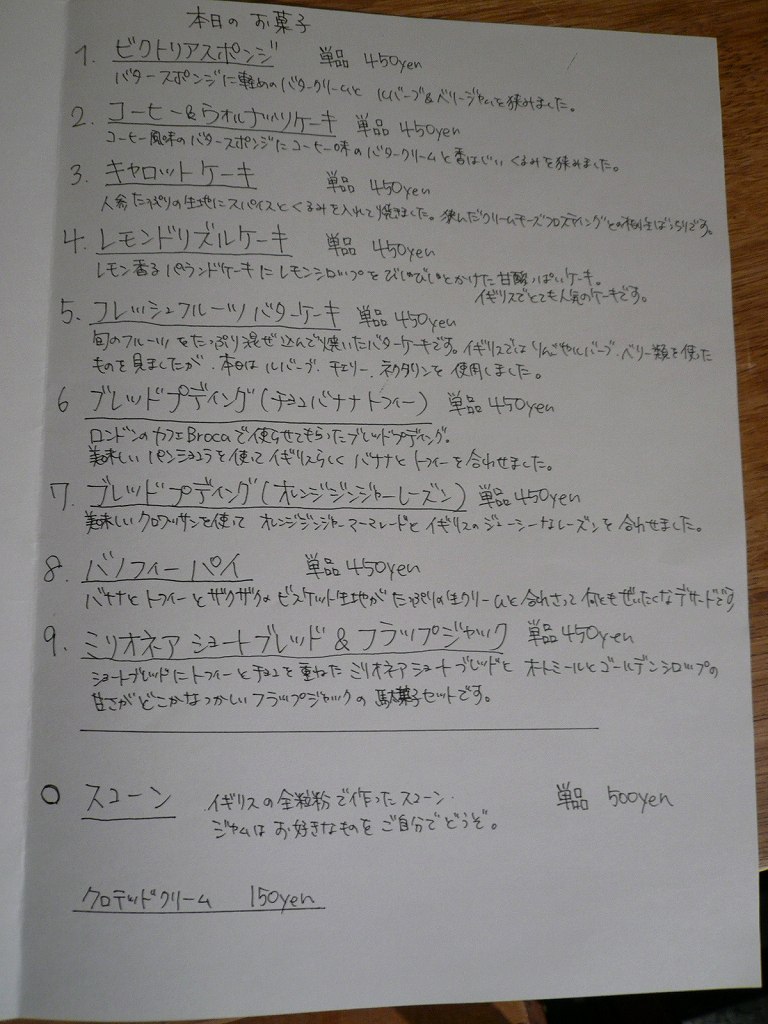 本日の お菓子
1. ビクトリアスポンジ 単品 450yen
バタースポンジに軽めのバタークリームと ルバーブ&ベリージャムを挟みました。
2. コーヒー&ウォルナッツケーキ 単品 450yen
コーヒー風味のバタースポンジにコーヒー味のバタークリームと香ばしいくるみを挟みました。
3. キャロットケーキ 単品 450yen
人参たっぷりの生地にスパイスとくるみを入れて焼きました。挟んだクリームチーズフロスティングとの相性ばっちりです。
4. レモンドリズルケーキ 単品 450yen
レモン香るパウンドケーキにレモンシロップをびしゃびしゃとかけた甘酸っぱいケーキ。
イギリスでとても人気のケーキです。
5. フレッシュフルーツバターケーキ 単品 450yen
旬のフルーツをたっぷり混ぜ込んで焼いたバターケーキです。イギリスではりんごやルバーブ、ベリー類を使った
ものを見ましたが、本日はルバーブ、チェリー、ネクタリンを使用しました。
6 ブレッドプディング(チョコバナナトフィー) 単品 450yen
ロンドンのカフェBrocaで使らせてもらったブレッドプディング。
美味しいパンショコラを使ってイギリスらしくバナナとトフィーを合わせました。
7. ブレッドプディング(オレンジジンジャーレーズン) 単品 450yen
美味しいクロワッサンを使って オレンジジンジャーマーマレードとイギリスのジューシーなレーズンを合わせました。
8. バノフィーパイ 単品 450yen
バナナとトフィーとザクザクのビスケット生地がたっぷりの生クリームと合わさって何ともぜいたくなデザートです
9. ミリオネアショートブレッド&フラップジャック 単品 450yen
ショートブレッドにトフィーとチョコを重ねたミリオネアショートブレッドと オートミールとゴールデンシロップの
甘さがどこかなつかしいフラップジャックの駄菓子セットです。
○ スコーン イギリスの全粒粉で作ったスコーン. 単品 500yen
ジャムはお好きなものをご自分でどうぞ。
クロテッドクリーム 150yen